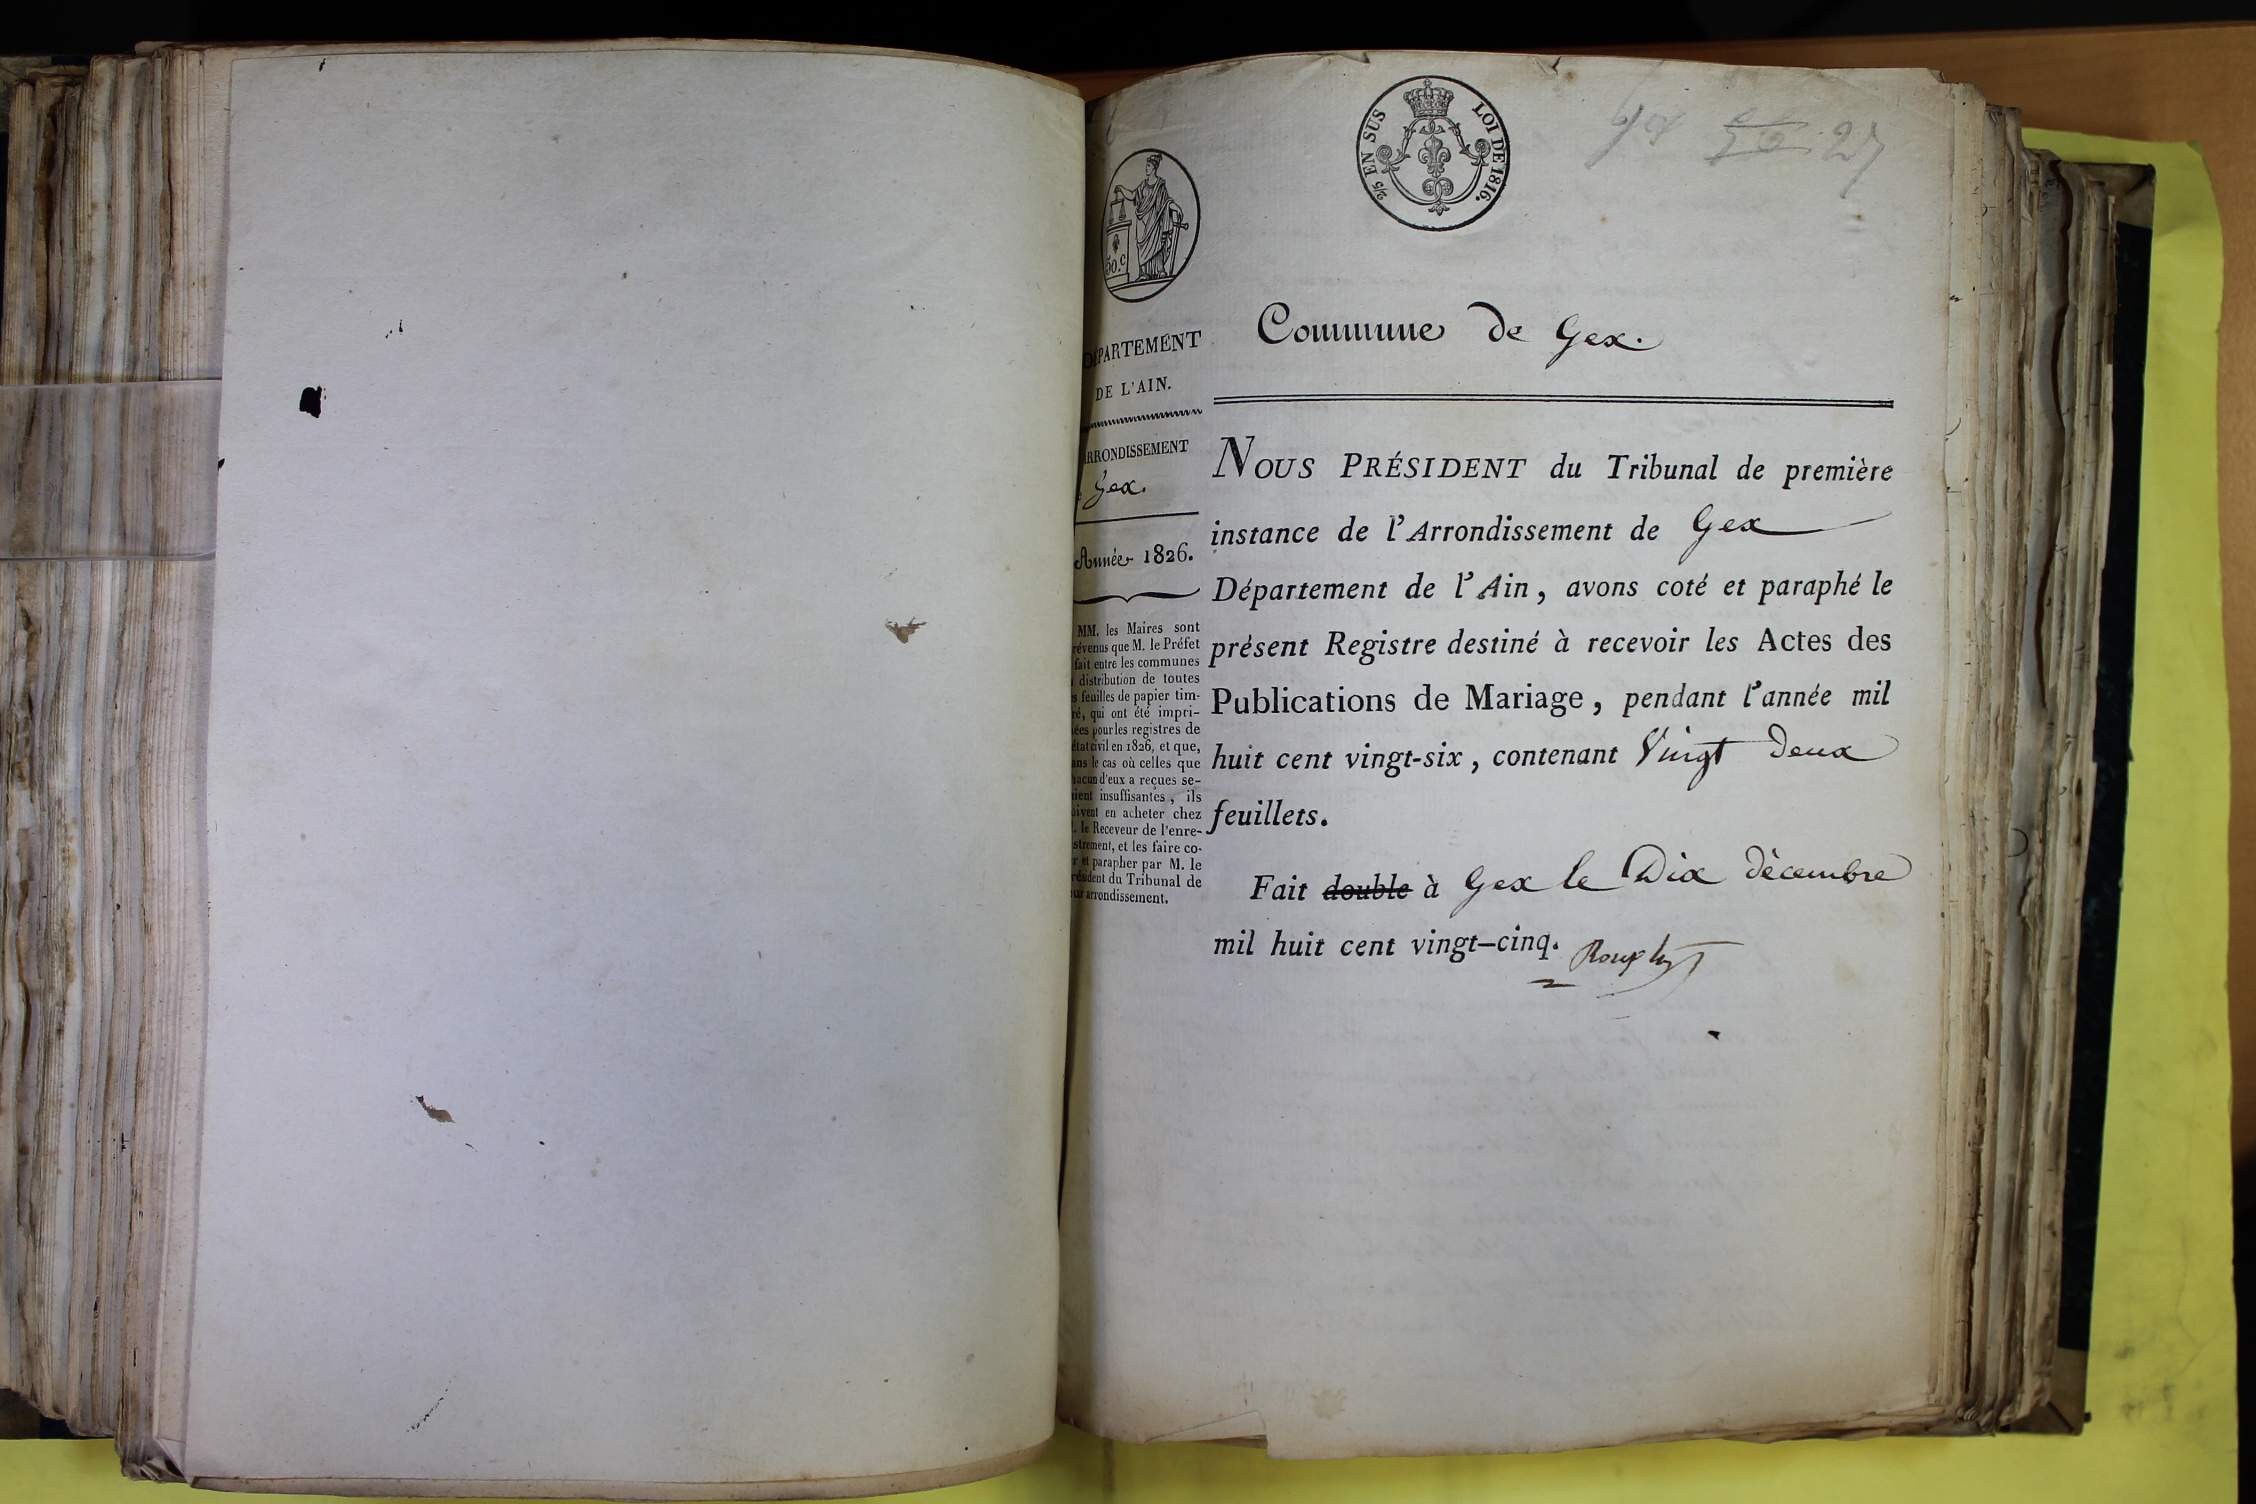 2/5 EN SUS LOI DE 1816.
27
50.c
Commune de Gex.
DÉPARTEMENT
DE L'AIN.
ARRONDISSEMENT
Gex.
Année 1826.
MM. les Maires sont
révenus que M. le Préfet
fait entre les communes
distribution de toutes
s feuilles de papier tim-
ré, qui ont été impri-
ées pour les registres de
état civil en 1826, et que,
ans le cas où celles que
hacun d'eux a reçues se-
aient insuffisantes, ils
oivent en acheter chez
. le Receveur de l'enre-
strement, et les faire co-
r et parapher par M. le
résident du Tribunal de
ur arrondissement.
NOUS PRÉSIDENT du Tribunal de première
instance de l'Arrondissement de Gex
Département de l'Ain, avons coté et paraphé le
présent Registre destiné à recevoir les Actes des
Publications de Mariage, pendant l'année mil
huit cent vingt-six, contenant Vingt Deux
feuillets.
Fait double à Gex le Dix décembre
mil huit cent vingt-cinq.